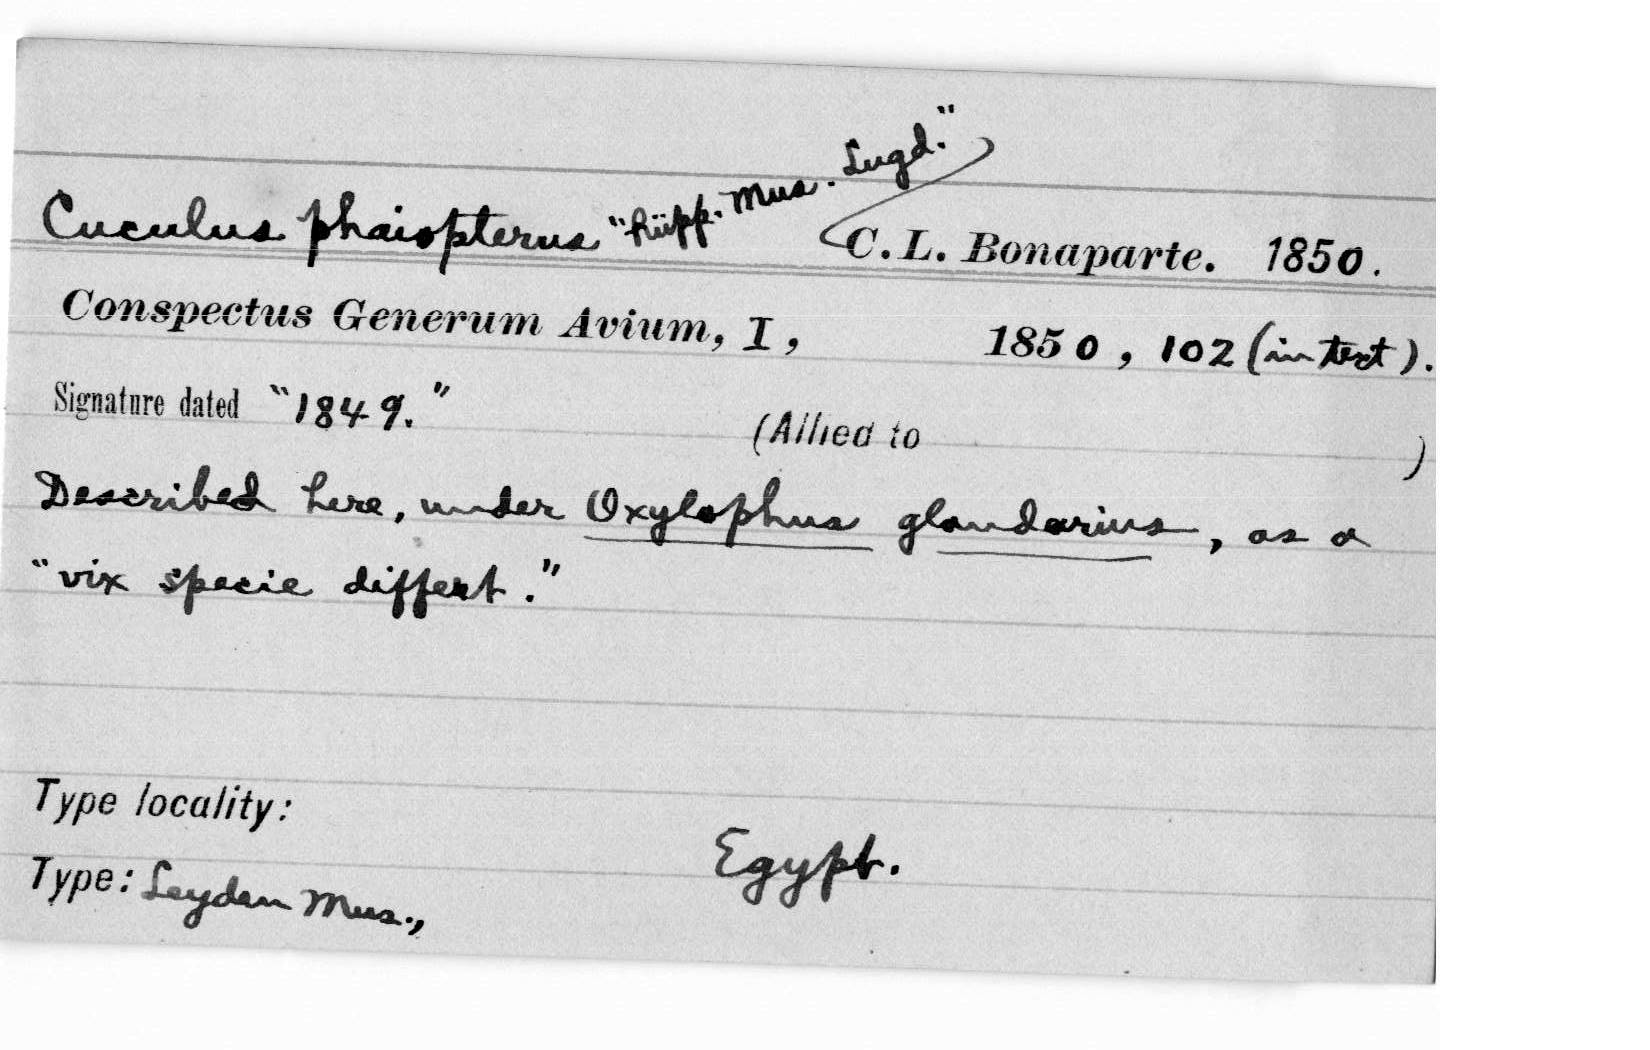 Cuculus phaiopterus "Rüpp. Mus. Lugd." C. L. Bonaparte. 1850.
Conspectus Generum Avium, I, 1850, 102 (in text).
Signature dated "1849."
(Allied to )
Described here, under Oxylophus glandarius, as a
"vix specie differt."
Type locality:
Egypt.
Type: Leyden Mus.,